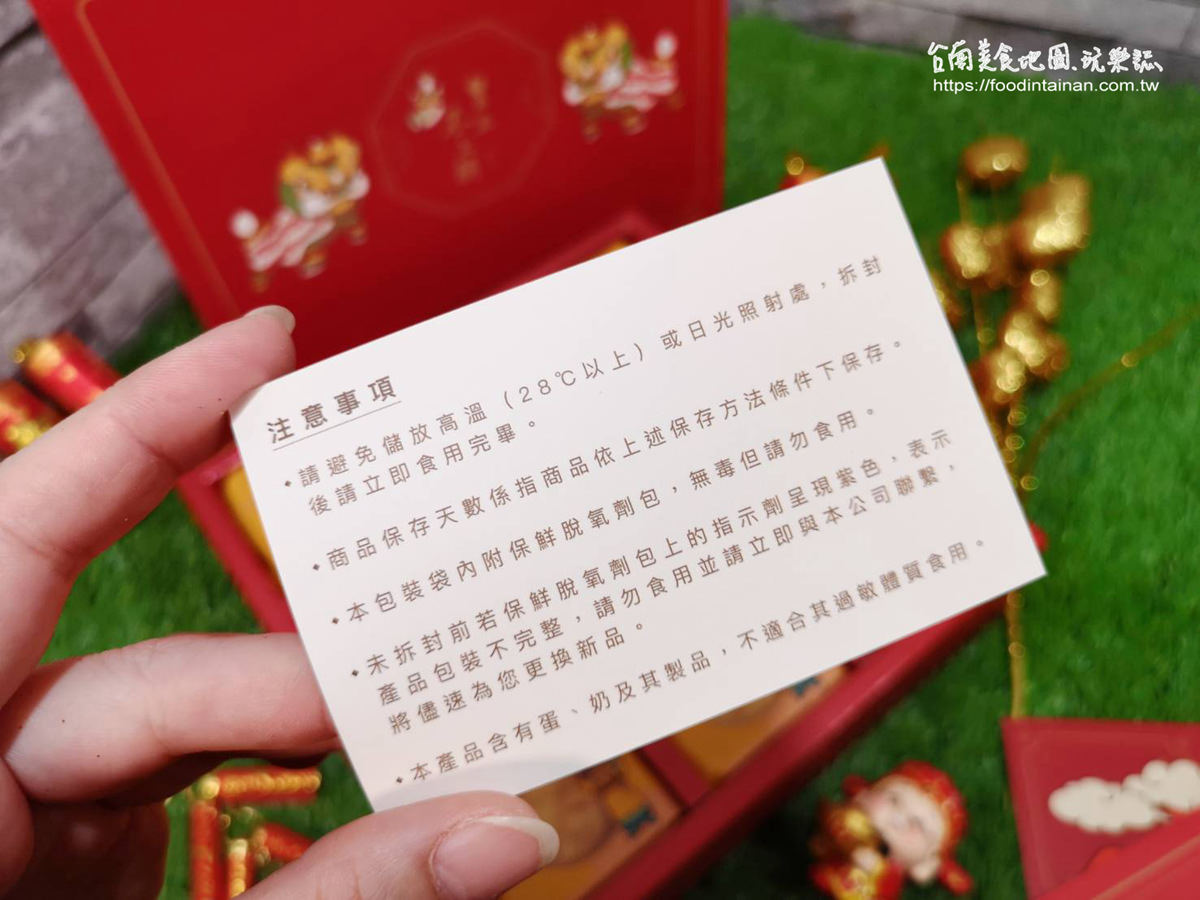 台南美食地圖.玩樂誌
https://foodintainan.com.tw
注意事項
•請避免儲放高溫（28℃以上）或日光照射處，拆封
後請立即食用完畢。
•商品保存天數係指商品依上述保存方法條件下保存。
•本包裝袋內附保鮮脫氧劑包，無毒但請勿食用。
•未拆封前若保鮮脫氧劑包上的指示劑呈現紫色，表示
產品包裝不完整，請勿食用並請立即與本公司聯繫，
將儘速為您更換新品。
•本產品含有蛋、奶及其製品，不適合其過敏體質食用。